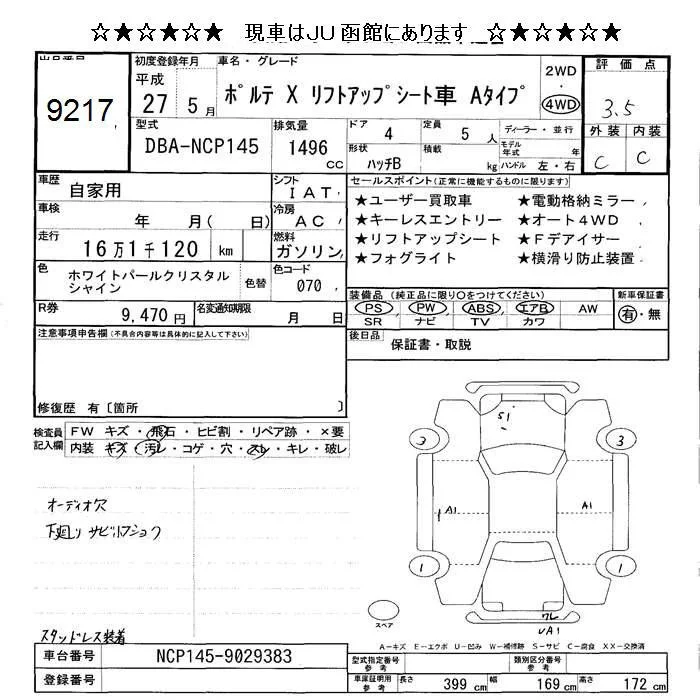 ☆★☆★☆★☆ 現車はJU函館にあります ☆★☆★☆★☆
初度登録年月 車名・グレード 2WD ・ 4WD 評価点
9217
平成 27 5月 ポルテ X リフトアップシート車 Aタイプ 3.5
型式 DBA-NCP145 排気量 1496 cc
ドア 4 定員 5 人 ディーラー・並行 外装 内装
形状 ハッチB 積載 kg モデル年式 年 ハンドル 左・右 C C
車歴 自家用 シフト IAT
車検 年 月( 日) 冷房 AC
走行 16万1千120 km 燃料 ガソリン
色 ホワイトパールクリスタルシャイン 色替 色コード 070
R券 9,470円 名変通知期限 月 日
セールスポイント(正常に機能するものに限ります)
★ユーザー買取車 ★電動格納ミラー
★キーレスエントリー ★オート4WD
★リフトアップシート ★Fデアイサー
★フォグライト ★横滑り防止装置
装備品(純正品に限り○をつけてください) 新車保証書
PS PW ABS エアB AW 有・無
SR ナビ TV カワ
後日品 保証書・取説
注意事項申告欄(不具合内容等は具体的に記入して下さい)
修復歴 有〔箇所 〕
検査員記入欄 FW キズ・飛石・ヒビ割・リペア跡・×要
内装 キズ・汚レ・コゲ・穴・スレ・キレ・破レ
オーディオ穴
下廻り サビ
スタッドレス装着
S1
3 3
A1 A1
1 1
スペア
UA1
A-キズ E-エクボ U-凹み W-補修跡 S-サビ C-腐食 XX-交換済
車台番号 NCP145-9029383
登録番号
型式指定番号 参考 類別区分番号 参考
車庫証明用 参考 長さ 399 cm 幅 169 cm 高さ 172 cm